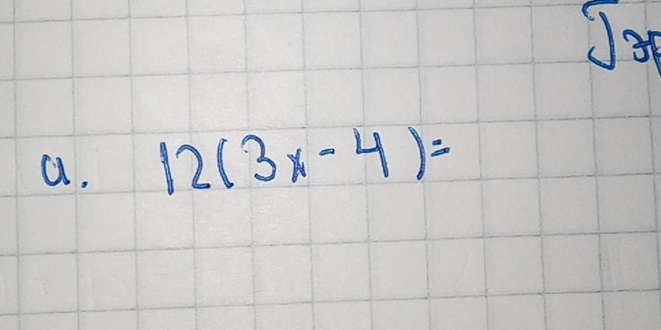 a. 12(3x-4)=